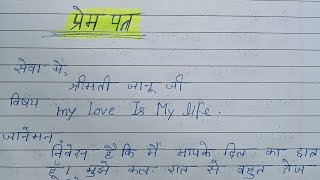 प्रेम पत्र
सेवा में,
श्रीमती जानू जी
विषय my Love Is My life.
जानेमन,
निवेदन है कि मैं आपके दिल का हाल
हूँ। मुझे कल रात से बहुत तेज